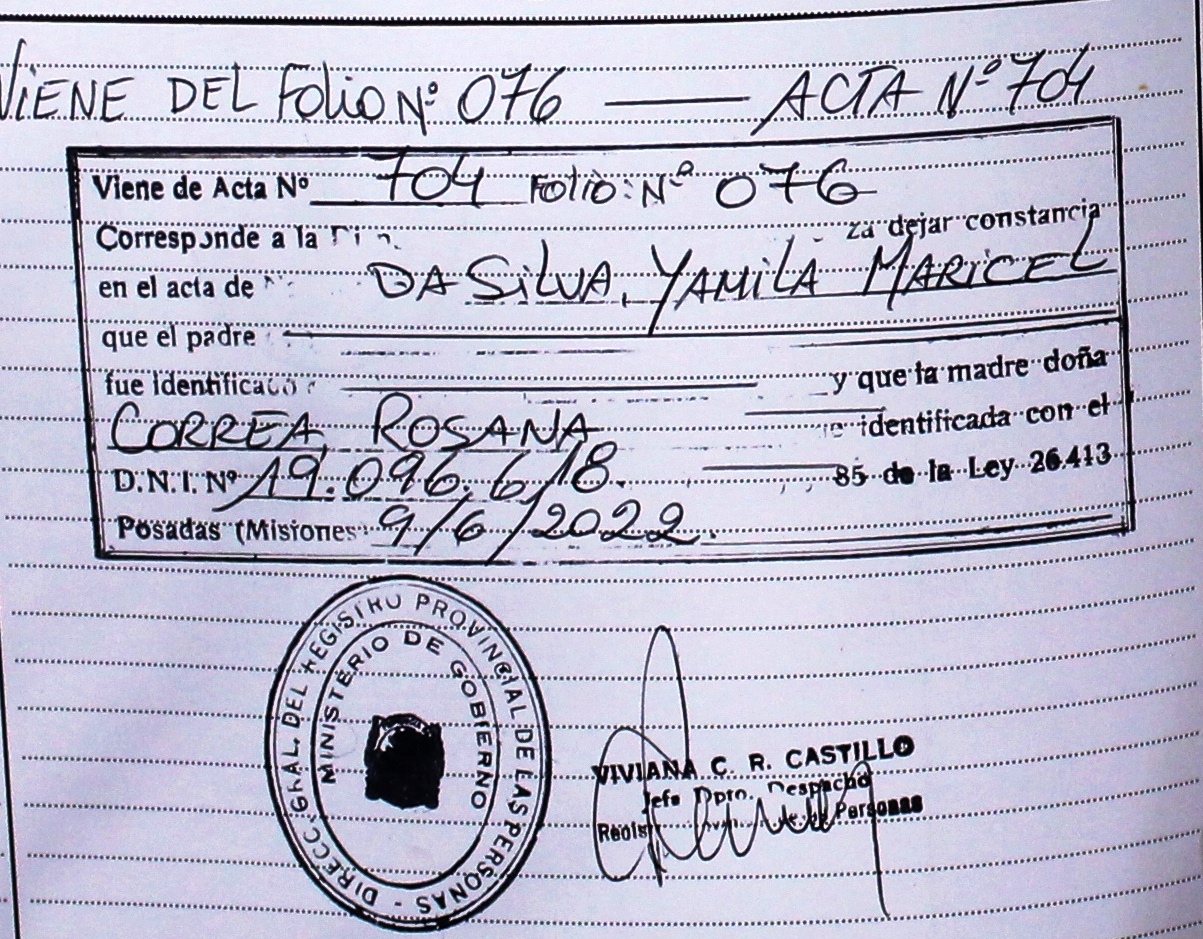 VIENE DEL FOLIO Nº 076 ACTA Nº 704
Viene de Acta Nº 704 FOLIO: Nº 076
Corresponde a la za dejar constancia
en el acta de DA SILVA, YAMILA MARICEL
que el padre
fue identificado y que la madre doña
CORREA, ROSANA identificada con el
D.N.I. Nº 19.096.618. 85 de la Ley 26.413
Posadas (Misiones 9/6/2022.
DIRECC. GRAL. DEL REGISTRO PROVINCIAL DE LAS PERSONAS -
MINISTERIO DE GOBIERNO
VIVIANA C. R. CASTILLO
Jefa Dpto. Despacho
Personas